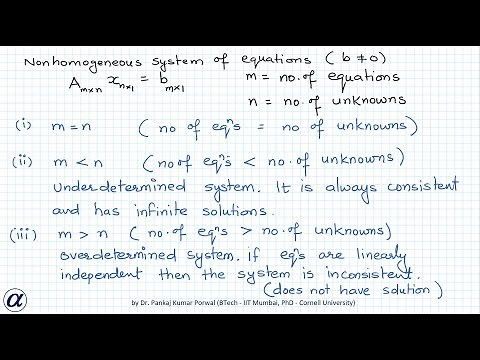 Nonhomogeneous system of equations ( b ≠ 0 )
A m×n x n×1 = b m×1 m = no. of equations
n = no. of unknowns
(i) m = n ( no of eqⁿs = no of unknowns )
(ii) m < n ( no of eqⁿs < no. of unknowns )
Underdetermined system. It is always consistent
and has infinite solutions.
(iii) m > n ( no. of eqⁿs > no. of unknowns )
Overdetermined system. if eqⁿs are linearly
independent then the system is inconsistent.
(does not have solution )
α
by Dr. Pankaj Kumar Porwal (BTech - IIT Mumbai, PhD - Cornell University)